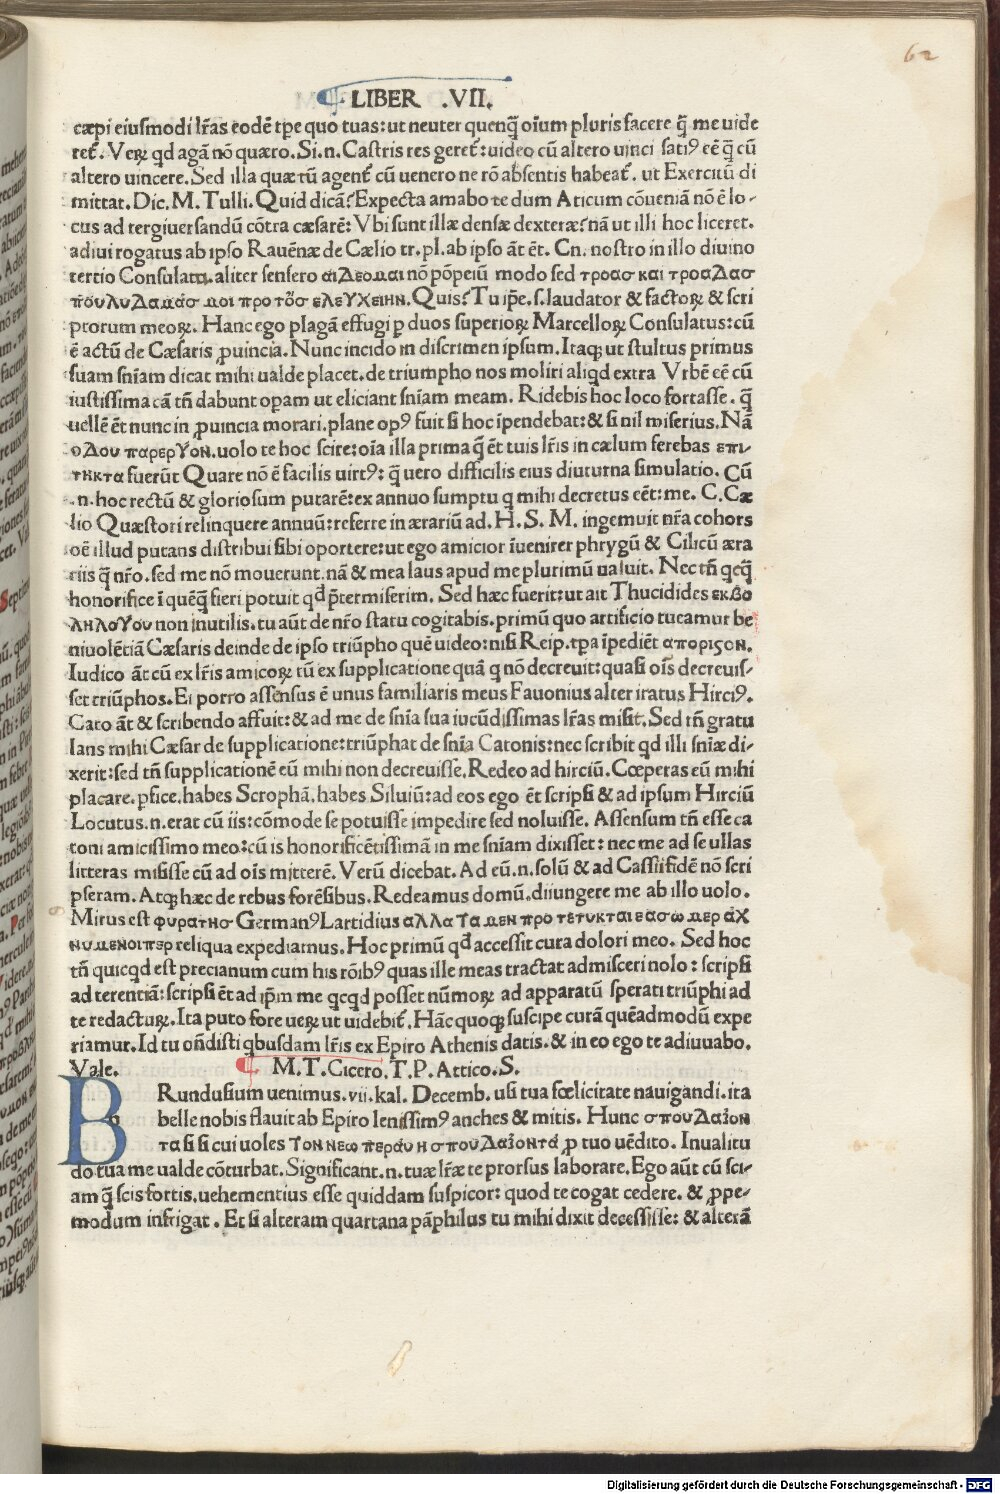 62
LIBER .VII.
cæpi eiusmodi lr̃as eodẽ tꝑe quo tuas: ut neuter quenq̃ oĩum pluris facere q̃ me uide
ret̃. Veꝝ qd agã nõ quæro. Si.n. Castris res geret̃: uideo cũ altero uinci satiꝰ eẽ q̃ cũ
altero uincere. Sed illa quæ tũ agent̃ cũ uenero ne rõ absentis habeat̃. ut Exercitũ di
mittat. Dic. M. Tulli. Quid dicã? Expecta amabo te dum Aticum cõueniã nõ ẽ lo-
cus ad tergiuersandũ cõtra cæsarẽ: Vbi sunt illæ densæ dexteræ? nã ut illi hoc liceret.
adiui rogatus ab ipso Rauẽnæ de Cælio tr. pl. ab ipso ãt ẽt. Cn. nostro in illo diuino
tertio Consulatu. aliter sensero αιΔεομαι nõ põpeiũ modo sed τροασ και τροαΔασ
πȣλυΔαμασ μοι προτος ελεγχειην. Quis? Tu iꝑe. s. laudator & factoꝝ & scri
ptorum meoꝝ. Hanc ego plagã effugi ꝑ duos superioꝝ Marcelloꝝ Consulatus: cũ
ẽ actũ de Cæsaris ꝓuincia. Nunc incido in discrimen ipsum. Itaqꝫ ut stultus primus
suam sñiam dicat mihi ualde placet. de triumpho nos moliri aliqd extra Vrbẽ eẽ cũ
iustissima cã tñ dabunt opam ut eliciant sñiam meam. Ridebis hoc loco fortasse. q̃
uellẽ ẽt nunc in ꝓuincia morari. plane opꝰ fuit si hoc ĩpendebat: & si nil miserius. Nã
οΔου παρεργον. uolo te hoc scire: oĩa illa prima q̃ ẽt tuis lr̃is in cælum ferebas επι-
τηκτα fuerũt Quare nõ ẽ facilis uirtꝰ: q̃ uero difficilis eius diuturna simulatio. Cũ
.n. hoc rectũ & gloriosum putarẽ: ex annuo sumptu q mihi decretus eẽt: me. C. Cæ
lio Quæstori relinquere annuũ: referre in ærariũ ad. H.S. M. ingemuit nr̃a cohors
oẽ illud putans distribui sibi oportere: ut ego amicior ĩuenirer phrygũ & Cilicũ æra
riis q̃ nr̃o. sed me nõ mouerunt. nã & mea laus apud me plurimũ ualuit. Nec tñ qcq̃
honorifice ĩ quẽq̃ fieri potuit qd p̃termiserim. Sed hæc fuerit: ut ait Thucidides εκβο
ληλογου non inutilis. tu aũt de nr̃o statu cogitabis. primũ quo artificio tueamur be
niuolẽtiã Cæsaris deinde de ipso triũpho quẽ uideo: nisi Reip. tp̃a ĩpediẽt αποριςον.
Iudico ãt cũ ex lr̃is amicoꝝ tũ ex supplicatione quã q nõ decreuit: quasi oĩs decreuis-
set triũphos. Ei porro assensus ẽ unus familiaris meus Fauonius alter iratus Hirciꝰ.
Cato ãt & scribendo affuit: & ad me de sñia sua iucũdissimas lr̃as misit. Sed tñ gratu
lans mihi Cæsar de supplicatione: triũphat de sñia Catonis: nec scribit qd illi sñiæ di-
xerit: sed tñ supplicationẽ eũ mihi non decreuisse. Redeo ad hirciũ. Cœperas eũ mihi
placare. ꝑfice. habes Scrophã. habes Siluiũ: ad eos ego ẽt scripsi & ad ipsum Hirciũ
Locutus.n. erat cũ iis: cõmode se potuisse impedire sed noluisse. Assensum tñ esse ca
toni amicissimo meo: cũ is honorificẽtissimã in me sñiam dixisset: nec me ad se ullas
litteras misisse cũ ad oĩs mitterẽ. Verũ dicebat. Ad eũ.n. solũ & ad Cassii fidẽ nõ scri
pseram. Atqꝫ hæc de rebus forẽsibus. Redeamus domũ. diiungere me ab illo uolo.
Mirus est φυρατησ Germanꝰ Lartidius αλλα τα μεν προτετυκται εασω μερ αχ
νυμενοι περ reliqua expediamus. Hoc primũ qd accessit cura dolori meo. Sed hoc
tñ quicqd est precianum cum his rõibꝰ quas ille meas tractat admisceri nolo: scripsi
ad terentiã: scripsi ẽt ad ip̃m me qcqd posset nũmoꝝ ad apparatũ sperati triũphi ad
te redactuꝝ. Ita puto fore ueꝝ ut uidebit̃. Hãc quoqꝫ suscipe curã quẽadmodũ expe
riamur. Id tu oñdisti qbusdam lr̃is ex Epiro Athenis datis. & in eo ego te adiuuabo.
Vale. M.T. Cicero. T.P. Attico. S.
BRundusium uenimus. vii. kal. Decemb. usi tua fœlicitate nauigandi. ita
belle nobis flauit ab Epiro lenissimꝰ anches & mitis. Hunc σπουΔαῖον
τα si si cui uoles Τον νεω περαν η σπουΔαῖοντα ꝓ tuo uẽdito. Inualitu
do tua me ualde cõturbat. Significant.n. tuæ lr̃æ te prorsus laborare. Ego aũt cũ sci-
am q̃ scis fortis. uehementius esse quiddam suspicor: quod te cogat cedere. & ꝓpe-
modum infrigat. Et si alteram quartana pãphilus tu mihi dixit decessisse: & alterã
Digitalisierung gefördert durch die Deutsche Forschungsgemeinschaft - DFG